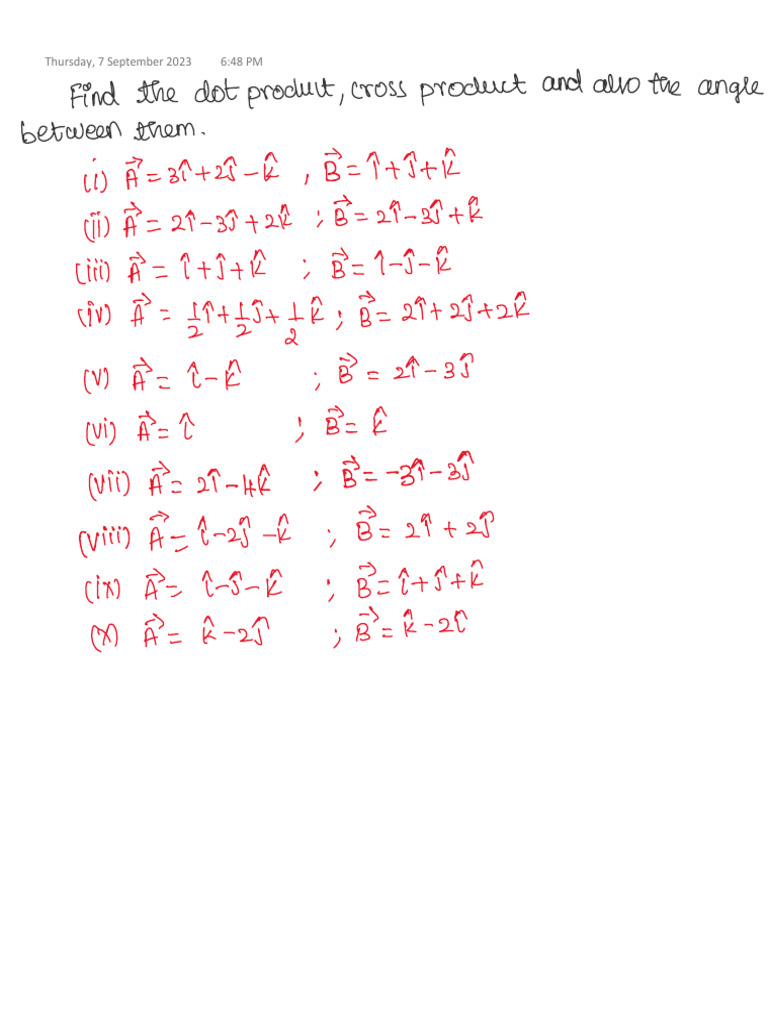 Thursday, 7 September 2023 6:48 PM
Find the dot product, cross product and also the angle
between them.
(i) A⃗ = 3î+2ĵ-k̂ , B⃗ = î+ĵ+k̂
(ii) A⃗ = 2î-3ĵ+2k̂ ; B⃗ = 2î-3ĵ+k̂
(iii) A⃗ = î+ĵ+k̂ ; B⃗ = î-ĵ-k̂
(iv) A⃗ = 1/2 î+1/2 ĵ+1/2 k̂ ; B⃗ = 2î+2ĵ+2k̂
(v) A⃗ = î-k̂ ; B⃗ = 2î-3ĵ
(vi) A⃗ = î ; B⃗ = k̂
(vii) A⃗ = 2î-4k̂ ; B⃗ = -3î-3ĵ
(viii) A⃗ = î-2ĵ-k̂ ; B⃗ = 2î+2ĵ
(ix) A⃗ = î-ĵ-k̂ ; B⃗ = î+ĵ+k̂
(x) A⃗ = k̂-2ĵ ; B⃗ = k̂-2î